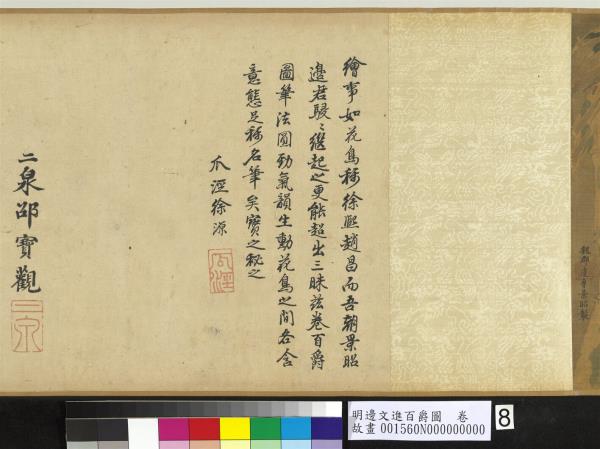 繪事如花鳥稱徐熙趙昌而吾朝景昭
邊君駸〻繼起之更能超出三昧玆卷百爵
圖筆法圓勁氣韻生動花鳥之間各含
意態足稱名筆矣寶之秘之
瓜涇徐源
瓜涇
二泉邵寶觀
二泉
明邊文進百爵圖 卷
故畫 001560N000000000
8